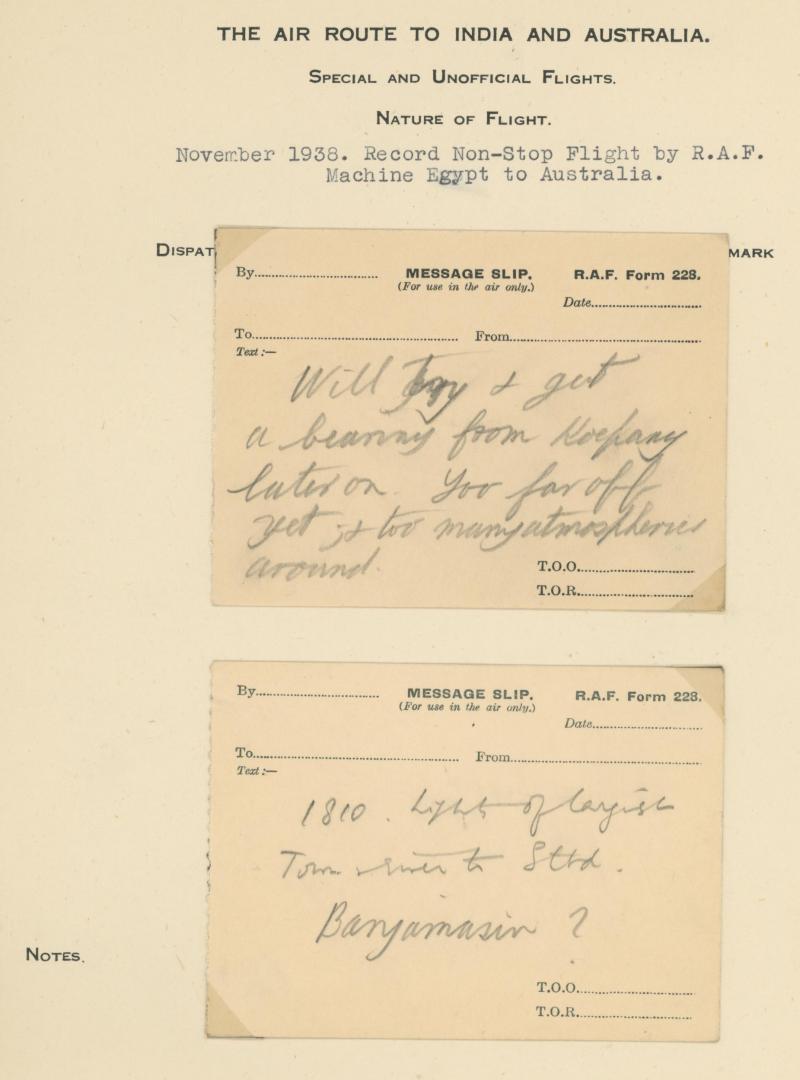 THE AIR ROUTE TO INDIA AND AUSTRALIA.
SPECIAL AND UNOFFICIAL FLIGHTS.
NATURE OF FLIGHT.
November 1938. Record Non-Stop Flight by R.A.F.
Machine Egypt to Australia.
DISPAT MARK
By.......... MESSAGE SLIP. R.A.F. Form 228.
(For use in the air only.)
Date..........
To.......... From..........
Text :—
Will try & get
a bearing from Koepang
later on. Too far off
yet, & too many atmospherics
around.
T.O.O..........
T.O.R..........
By.......... MESSAGE SLIP. R.A.F. Form 228.
(For use in the air only.)
Date..........
To.......... From..........
Text :—
1810. Lights of largish
Town & river to Stbd.
Banjamasin ?
NOTES.
T.O.O..........
T.O.R..........